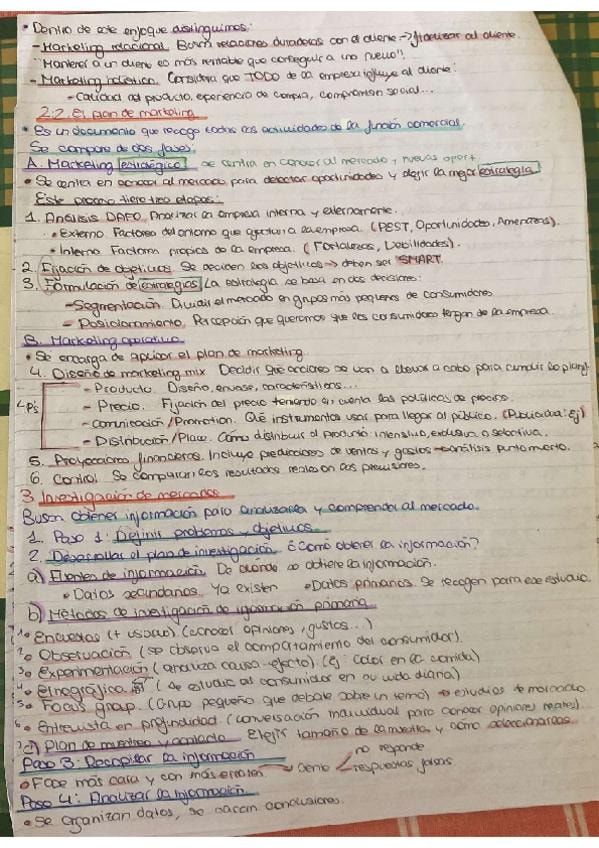 • Dentro de este enfoque distinguimos:
- Marketing relacional. Busca relaciones duraderas con el cliente → fidelizar al cliente.
"Mantener a un cliente es más rentable que conseguir a uno nuevo".
- Marketing holístico. Considera que TODO de la empresa influye al cliente:
- Calidad del producto, experiencia de compra, compromiso social...
2.2. El plan de marketing
• Es un documento que recoge todas las actividades de la función comercial.
Se compone de dos fases:
A. Marketing estratégico se centra en conocer al mercado y nuevas oport.
• Se centra en conocer al mercado para detectar oportunidades y elegir la mejor estrategia
Este proceso tiene tres etapas:
1. Análisis DAFO. Analizar la empresa interna y externamente.
• Externo. Factores del entorno que afectan a la empresa. (PEST, Oportunidades, Amenazas).
• Interno. Factores propios de la empresa. (Fortalezas, Debilidades).
2. Fijación de objetivos. Se deciden los objetivos → deben ser SMART.
3. Formulación de estrategias. La estrategia se basa en dos decisiones:
- Segmentación. Dividir el mercado en grupos más pequeños de consumidores
- Posicionamiento. Percepción que queremos que los consumidores tengan de la empresa.
B. Marketing operativo
• Se encarga de aplicar el plan de marketing.
4. Diseño de marketing mix. Decidir qué acciones se van a llevar a cabo para cumplir lo plan
4P's
- Producto. Diseño, envase, características...
- Precio. Fijación del precio teniendo en cuenta las políticas de precios.
- Comunicación/Promotion. Qué instrumentos usar para llegar al público. (Publicidad: Ej)
- Distribución/Place. Cómo distribuir el producto: intensiva, exclusiva o selectiva.
5. Proyecciones financieras. Incluye predicciones de ventas y gastos → análisis punto muerto.
6. Control. Se comparan los resultados reales con las previsiones.
3. Investigación de mercados
Busca obtener información para analizarla y comprender al mercado.
1. Paso 1: Definir problemas y objetivos.
2. Desarrollar el plan de investigación. ¿Cómo obtener la información?
a) Fuentes de información. De dónde se obtiene la información.
• Datos secundarios. Ya existen • Datos primarios. Se recogen para ese estudio.
b) Métodos de investigación de información primaria
1º• Encuestas (+ usado). (conocer opiniones, gustos...)
2º• Observación (se observa el comportamiento del consumidor).
3º• Experimentación (analiza causa-efecto). (ej: color en la comida)
4º• Etnográfica. (se estudia al consumidor en su vida diaria)
5º• Focus group. (Grupo pequeño que debate sobre un tema) → estudios de mercado.
6º• Entrevista en profundidad. (conversación individual para conocer opiniones reales).
c) Plan de muestreo y contacto. Elegir tamaño de la muestra y cómo seleccionarlas.
Paso 3: Recopilar la información
• Fase más cara y con más errores → Gente < no responde
respuestas falsas
Paso 4: Analizar la información.
• Se organizan datos, se sacan conclusiones.